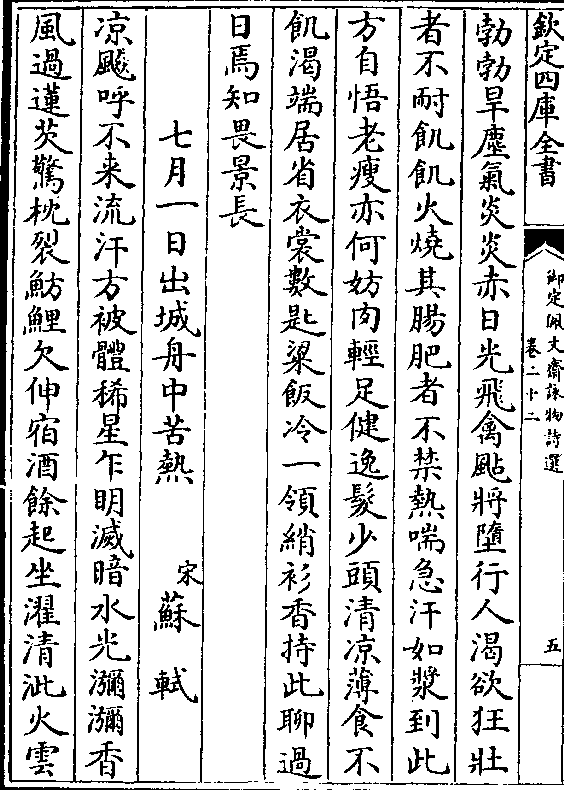 欽定四庫全書
御定佩文齋詠物詩選
卷二十二
五
勃勃旱塵氣炎炎赤日光飛禽颭將墮行人渴欲狂壯
者不耐飢飢火燒其腸肥者不禁熱喘急汗如漿到此
方自悟老瘦亦何妨肉輕足健逸髮少頭清凉薄食不
飢渴端居省衣裳數匙粱飯冷一領綃衫香持此聊過
日焉知畏景長
七月一日出城舟中苦熱
宋蘇軾
凉飈呼不来流汗方被體稀星乍明滅暗水光瀰瀰香
風過蓮芡驚枕裂魴鯉欠伸宿酒餘起坐濯清泚火雲